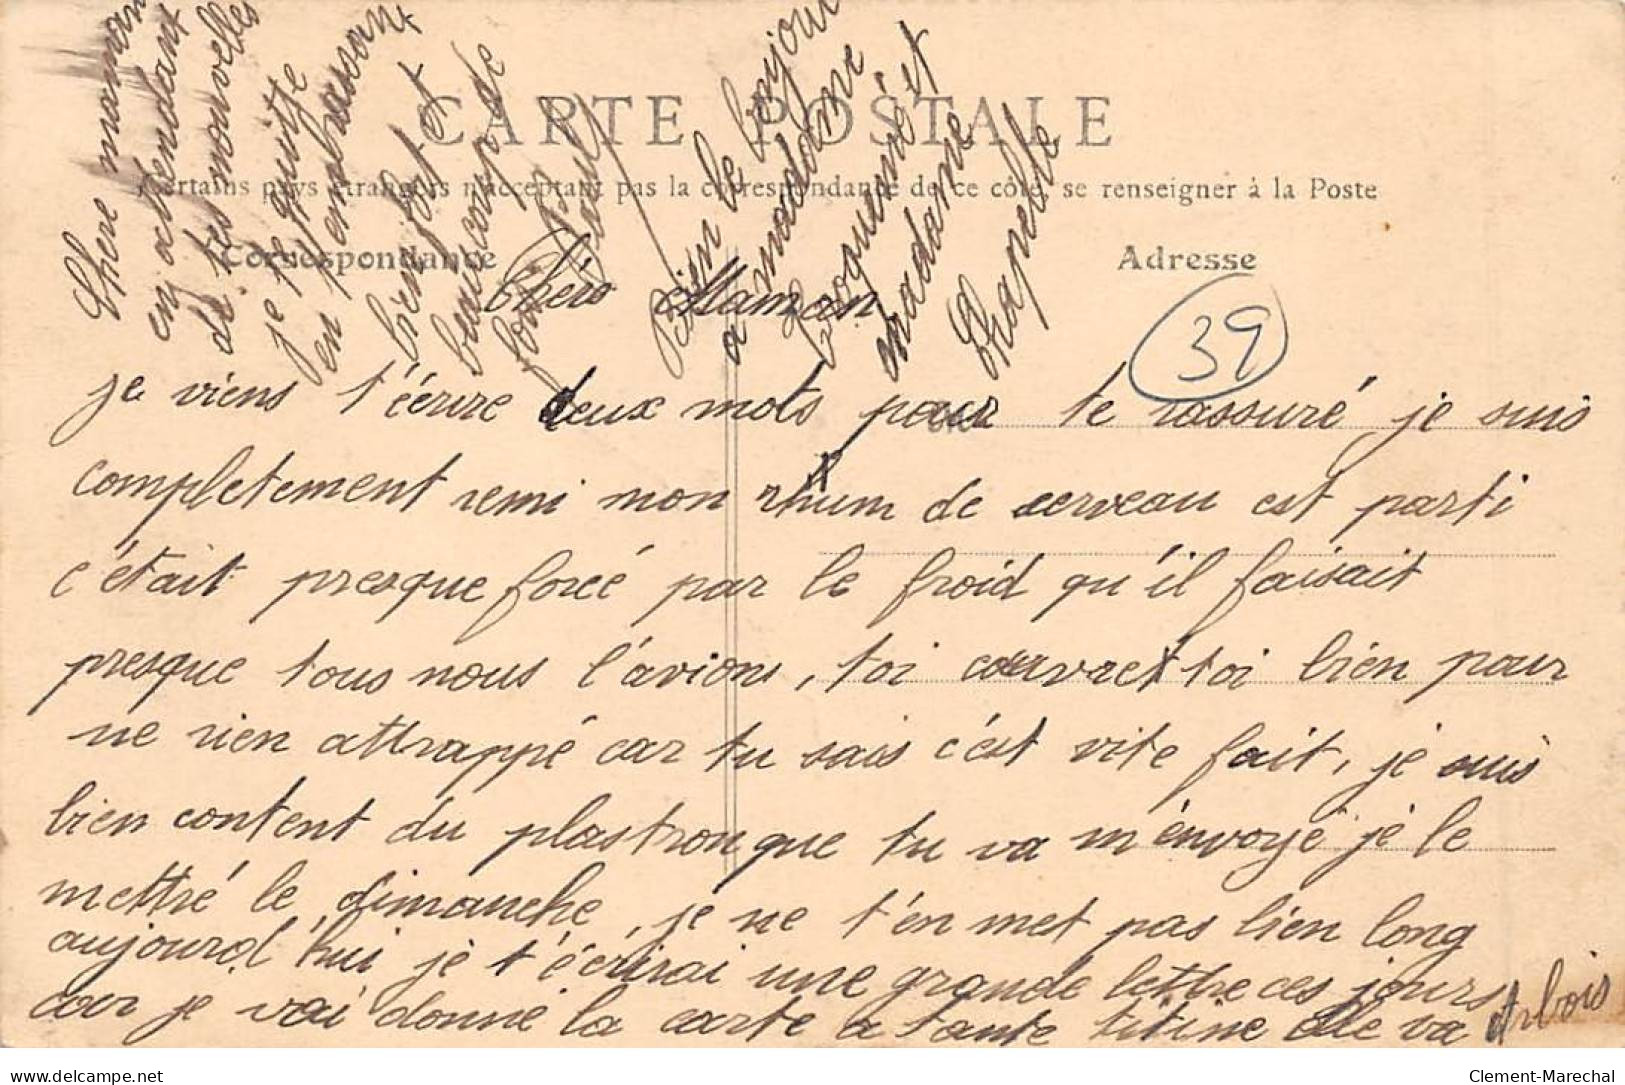 CARTE POSTALE
Certains pays étrangers n'acceptant pas la correspondance de ce côté, se renseigner à la Poste
Correspondance
Adresse
39
Chère maman
en attendant
de tes nouvelles
je te quitte
en t'embrassant
bien fort et
beaucoup de
fois
Paul
Bien le bonjour
a maddame
et
madame
Chapelle
Chère Maman
je viens t'éérire deux mots pour te rassuré je suis
completement remi mon rhum de cerveau est parti
c'était presque forcé par le froid qu'il faisait
presque tous nous l'avions, toi couvret toi bien pour
ne rien attrappé car tu sais c'est vite fait, je suis
bien content du plastron que tu va m'envoyé je le
mettré le dimanche, je ne t'en met pas bien long
aujourd'hui je t'éérirai une grande lettre ces jours
car je vai donné la carte a tante titine elle va Arbois
delcampe.net
Clement-Marechal